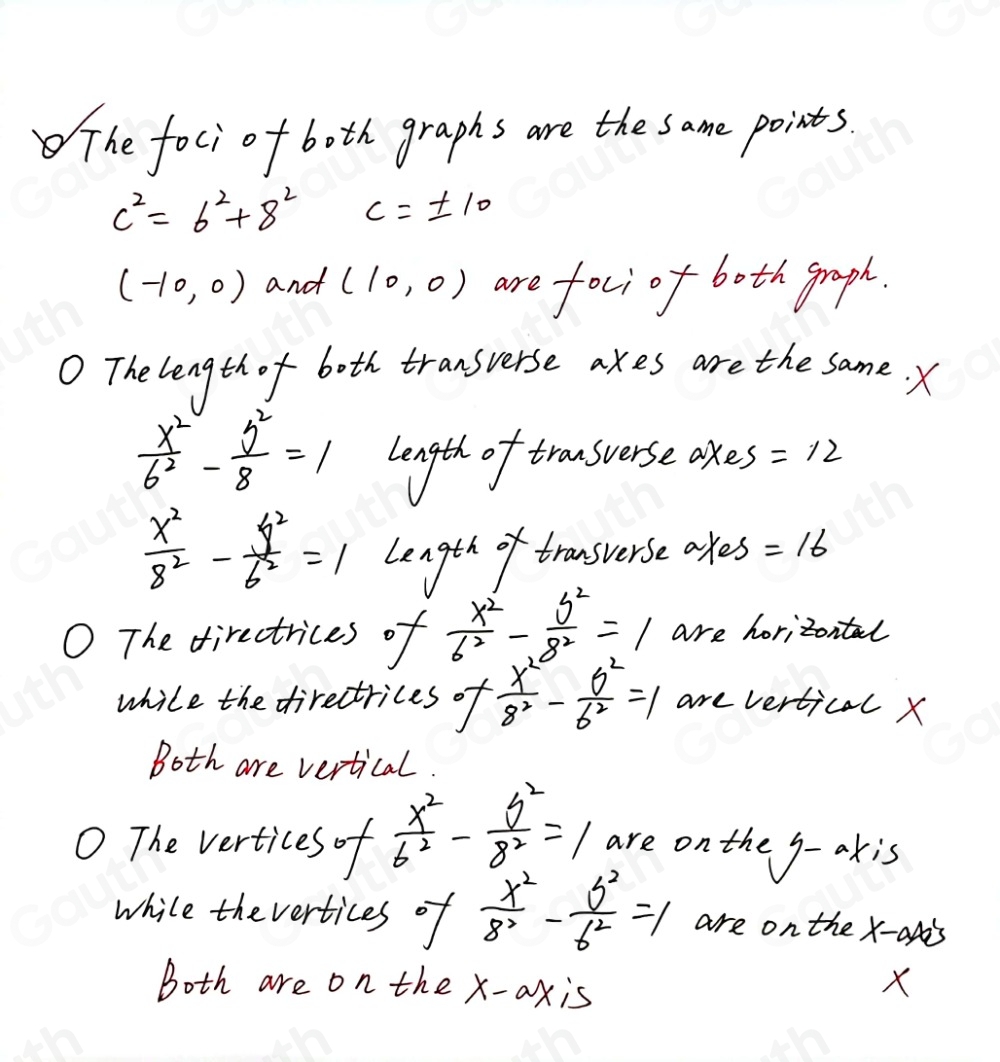 The foci of both graphs are the same points.
c² = 6² + 8² c = ±10
(-10, 0) and (10, 0) are foci of both graph.
O The length of both transverse axes are the same. X
x²/6² - y²/8 = 1 Length of transverse axes = 12
x²/8² - y²/6² = 1 Length of transverse axes = 16
O The directrices of x²/6² - y²/8² = 1 are horizontal
while the directrices of x²/8² - y²/6² = 1 are vertical X
Both are vertical.
O The vertices of x²/6² - y²/8² = 1 are on the y-axis
while the vertices of x²/8² - y²/6² = 1 are on the x-axis
Both are on the x-axis X
Gauth